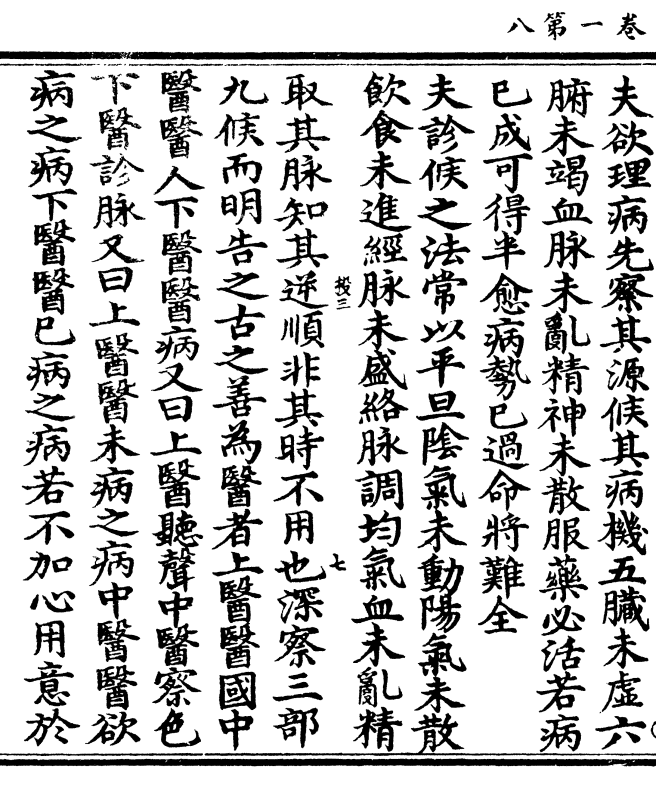 卷一第八
夫欲理病先察其源候其病機五臟未虛六
腑未竭血脉未亂精神未散服藥必活若病
已成可得半愈病勢已過命將難全
夫診候之法常以平旦陰氣未動陽氣未散
飲食未進經脉未盛絡脉調均氣血未亂精
取其脉知其逆順非其時不用也深察三部
校三
七
九候而明告之古之善為醫者上醫醫國中
醫醫人下醫醫病又曰上醫聽聲中醫察色
下醫診脉又曰上醫醫未病之病中醫醫欲
病之病下醫醫已病之病若不加心用意於